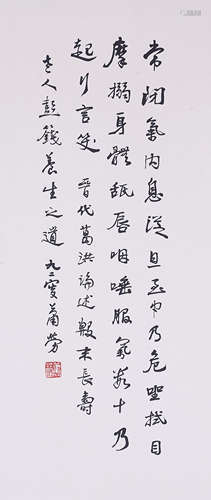 常闭氣内息從旦至中乃危坐拭目
摩搦身體舐唇咽唾服氣数十乃
起行言笑 晋代葛洪論述殷末長壽
老人彭錢養生之道 九二叟蕭勞